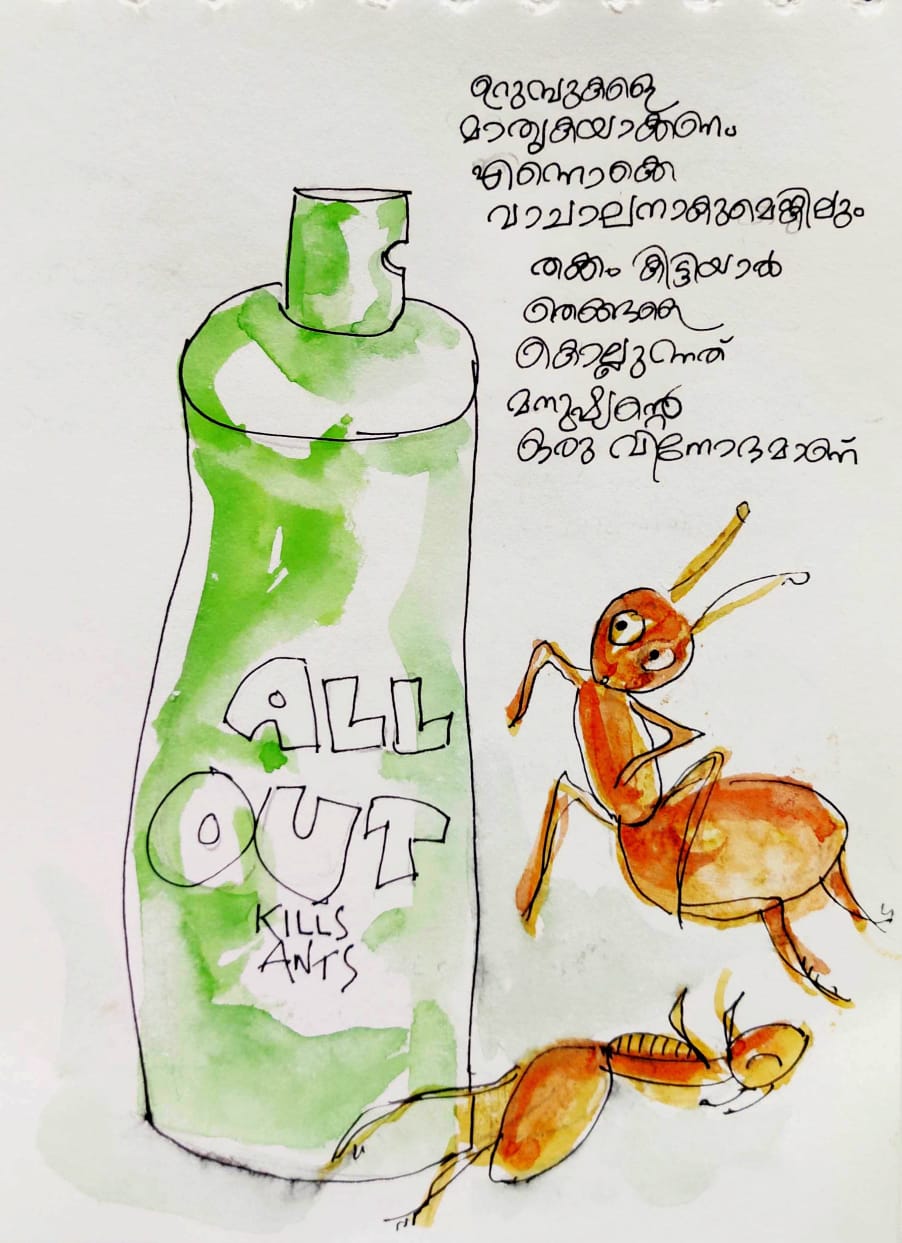 ഉറുമ്പുകളെ
മാതൃകയാക്കണം
എന്നൊക്കെ
വാചാലനാകുമെങ്കിലും
തക്കം കിട്ടിയാൽ
ഞങ്ങളെ
കൊല്ലുന്നത്
മനുഷ്യന്റെ
ഒരു വിനോദമാണ്
ALL
OUT
KILLS
ANTS